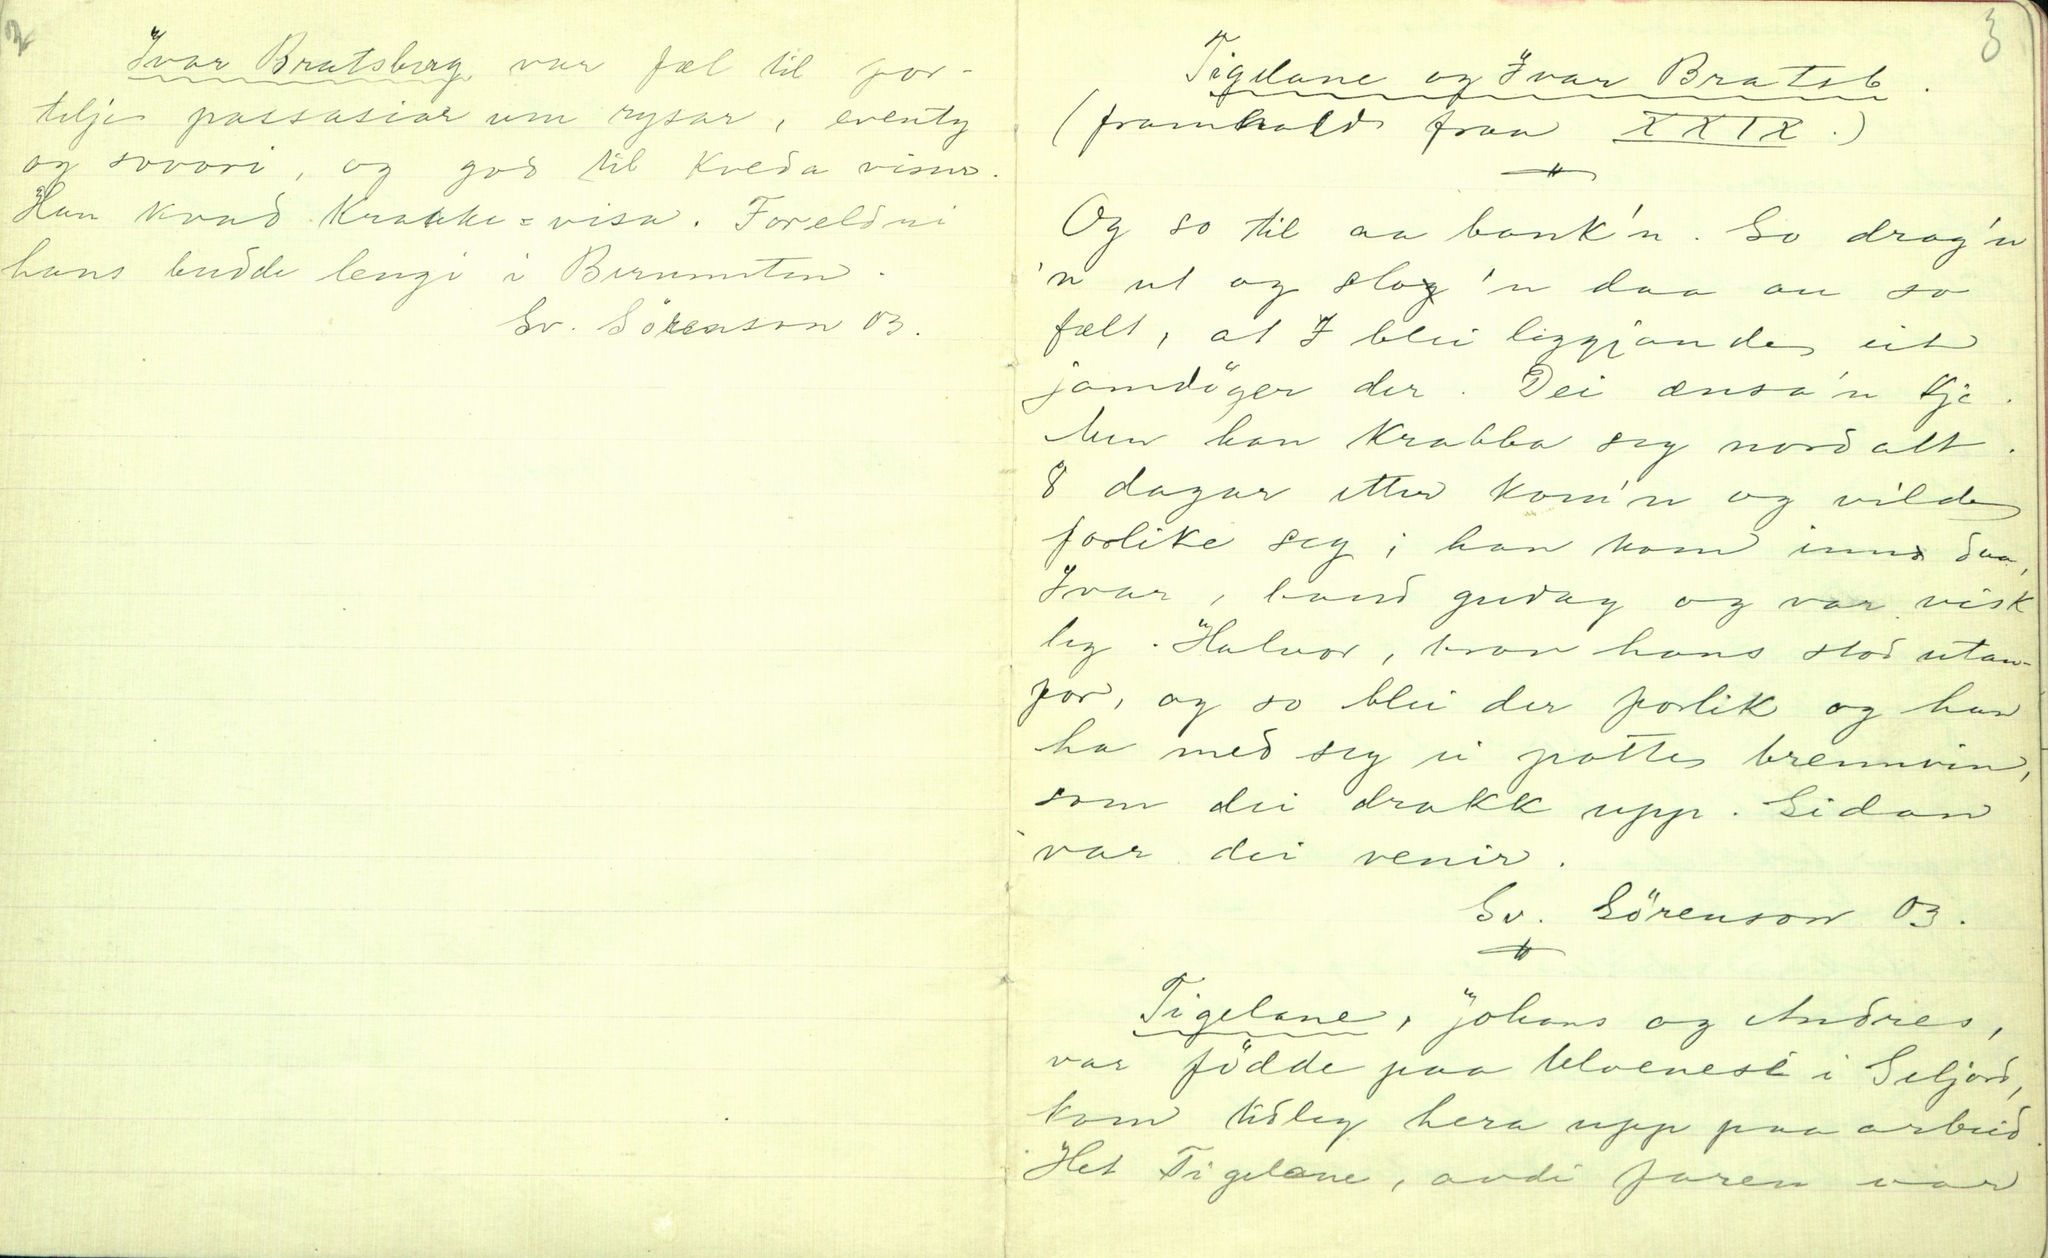 2
Ivar Bratsberg var fæl til for-
telje passasiar um rysar, eventy
og sovori, og god til kveda visur.
Han kvad Krakke=visa. Foreldri
hans budde lengi i Berunuten.
Sv. Sörenson 03.
3
Tigelane og Ivar Bratsb.
(framhald fraa XXIX.)
Og so til aa bank'n. So drog'n
'n ut og slog 'n daa au so
fælt, at I blei liggjande eit
jamdöger der. Dei ænsa'n kje.
Men han krabba seg nord att.
8 dagar etter kom'n og vilde
forlike seg; han kom inn daa,
Ivar, baud gudag og var visk
leg. Halvor, bror hans stod utan-
for, og so blei der forlik og han
ha med seg ei potte brennvin,
som dei drakk upp. Sidan
var dei venir.
Sv. Sörenson 03.
Tigelane, Johans og Andres,
var födde paa Ulvenest i Seljord,
kom tidleg hera upp paa arbeid.
Het Tigelane, avdi faren var